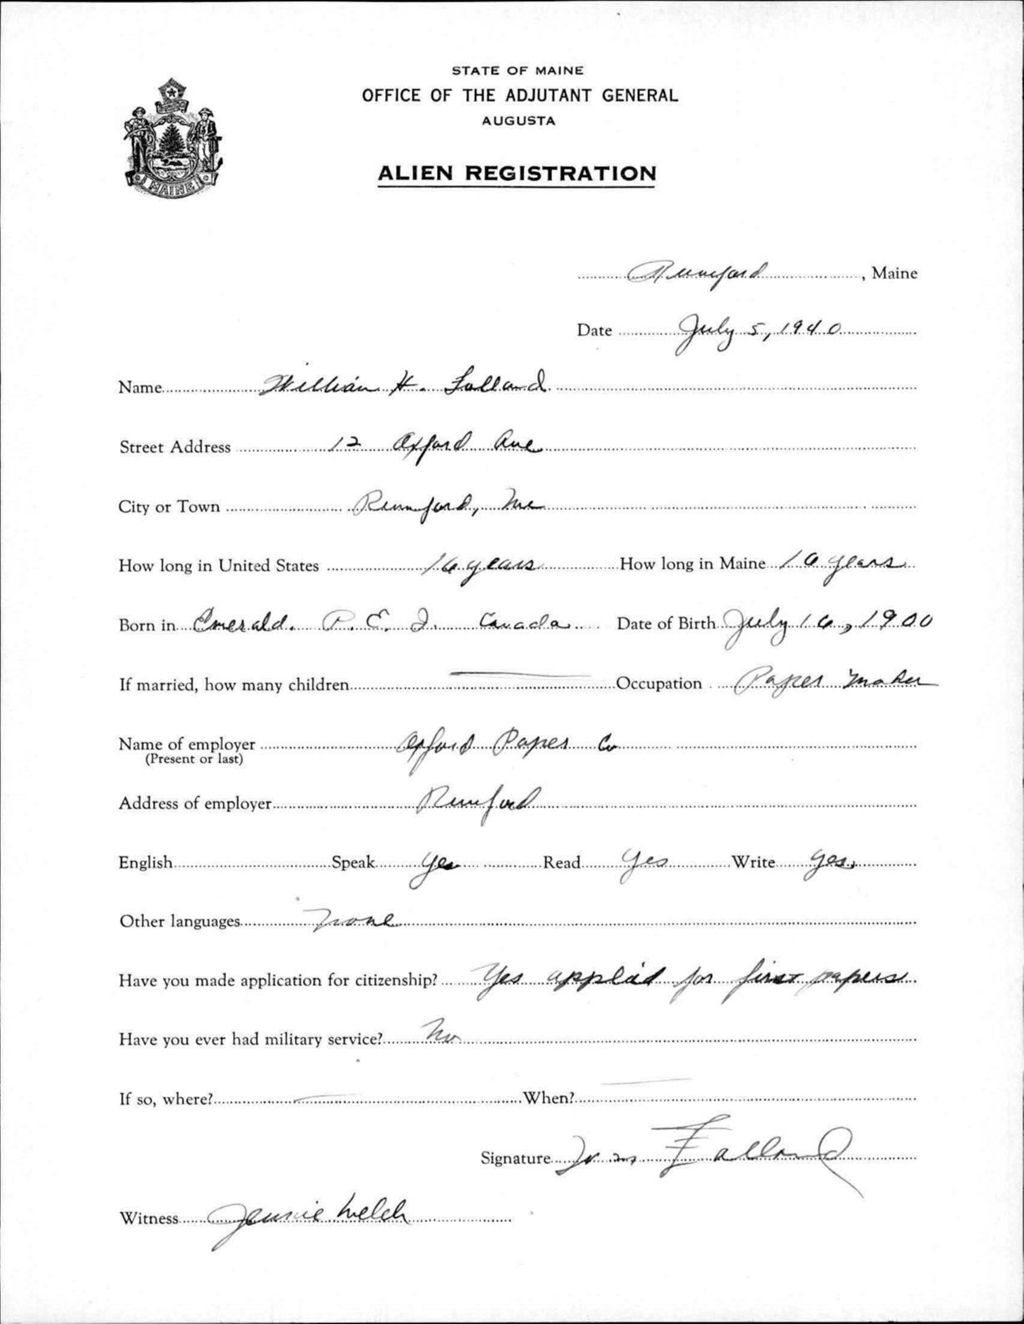 STATE OF MAINE
OFFICE OF THE ADJUTANT GENERAL
AUGUSTA
ALIEN REGISTRATION
MAINE
Rumford, Maine
Date July 5, 1940
Name William H. Falland
Street Address 12 Oxford Ave
City or Town Rumford, Me
How long in United States 16 years How long in Maine 16 years
Born in Emerald. P. E. I. Canada Date of Birth July 16, 1900
If married, how many children Occupation Paper Maker
Name of employer Oxford Paper Co
(Present or last)
Address of employer Rumford
English Speak Yes Read Yes Write Yes,
Other languages None
Have you made application for citizenship? Yes applied for first papers
Have you ever had military service? No
If so, where? When?
Signature Wm Falland
Witness Jennie Welch